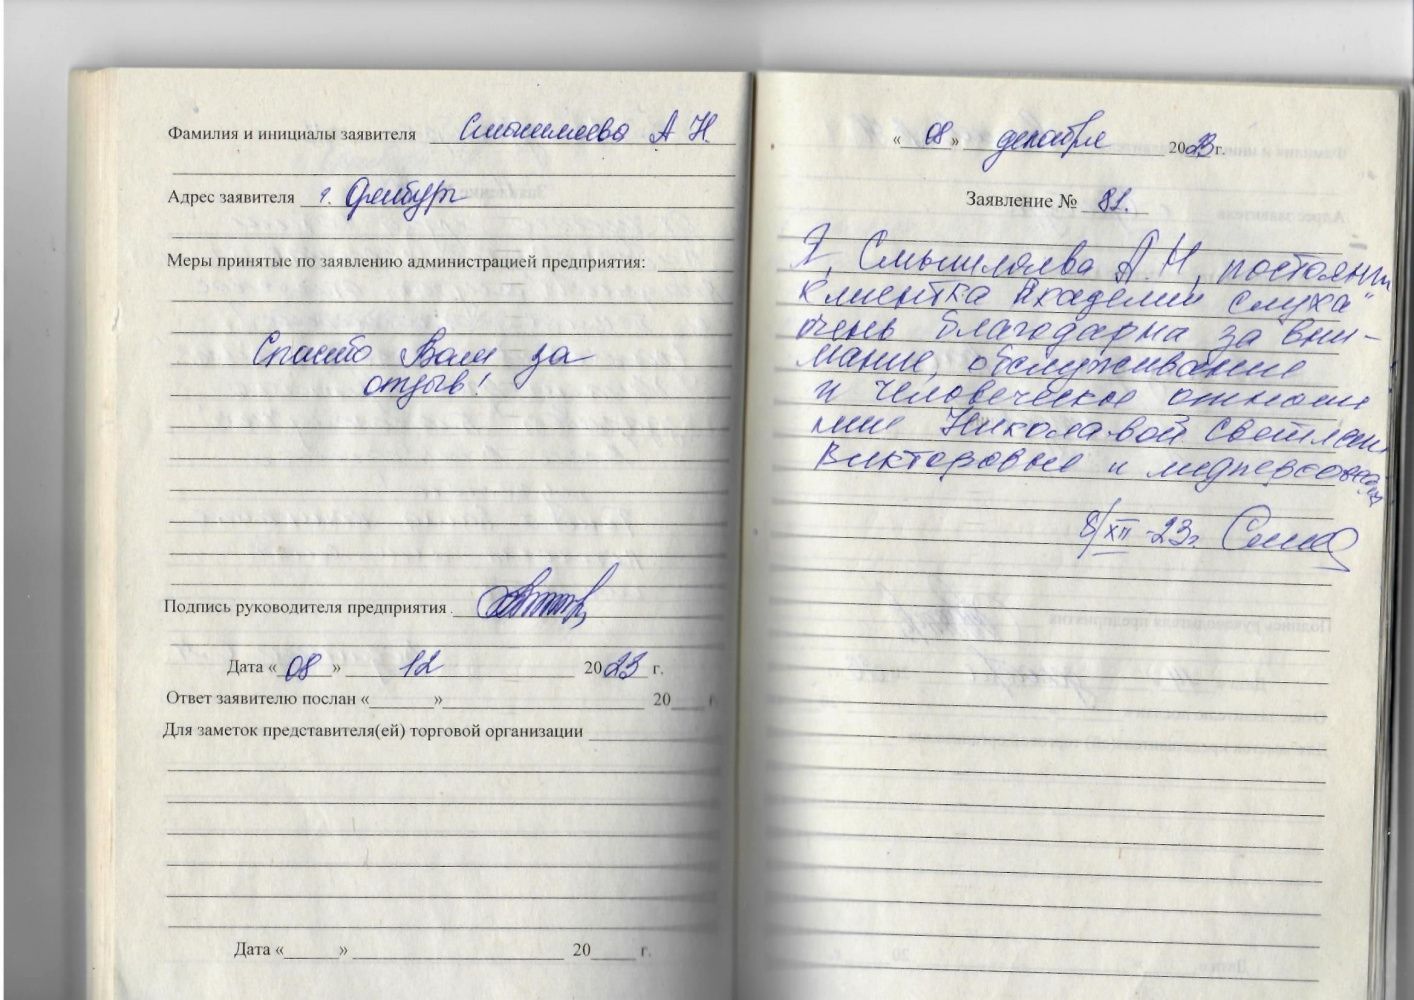 Фамилия и инициалы заявителя Смышляева А Н.
Адрес заявителя г. Оренбург
Меры принятые по заявлению администрацией предприятия:
Спасибо Вам за
отзыв!
Подпись руководителя предприятия
Дата « 08 » 12 2023 г.
Ответ заявителю послан « » 20 г.
Для заметок представителя(ей) торговой организации
Дата « » 20 г.
« 08 » декабря 2023г.
Заявление № 81.
Я, Смышляева А Н, постоянн
клиентка Академии слуха"
очень благодарна за вни-
мание, обслуживание
и человеческое отноше
ние Николаевой Светлан
Викторовне и медперсоналу
8/XII-23г.